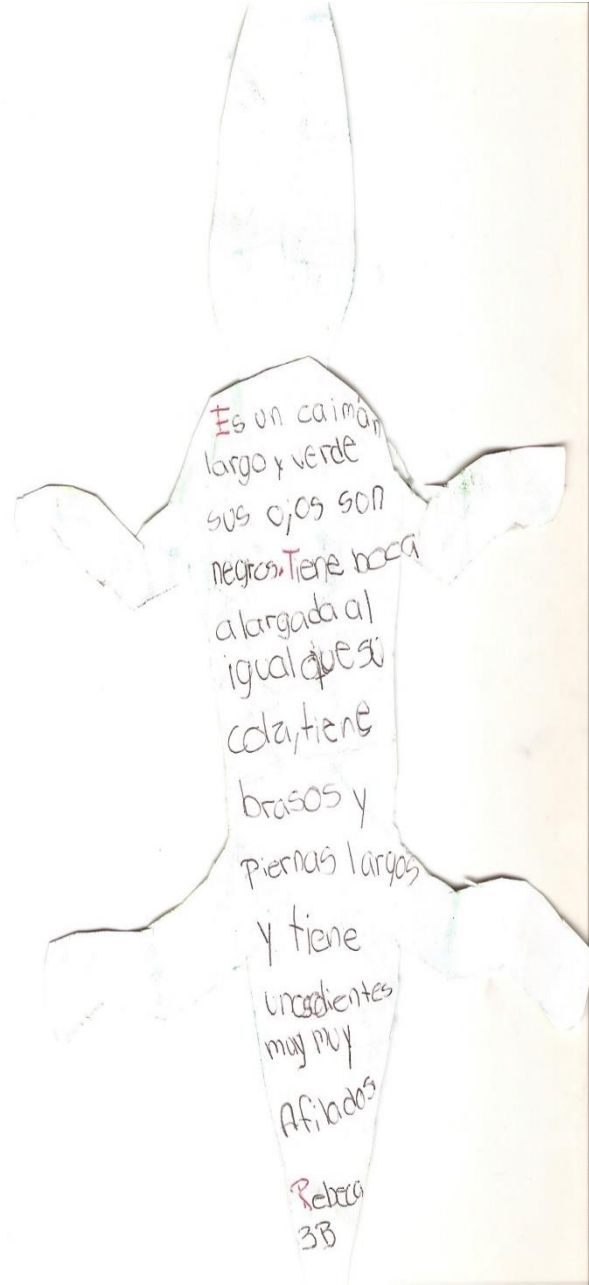 Es un caimán
largo y verde
sus ojos son
negros. Tiene boca
alargada al
igual que su
cola, tiene
brasos y
piernas largos
y tiene
unos dientes
muy muy
Afilados
Rebeca
3B